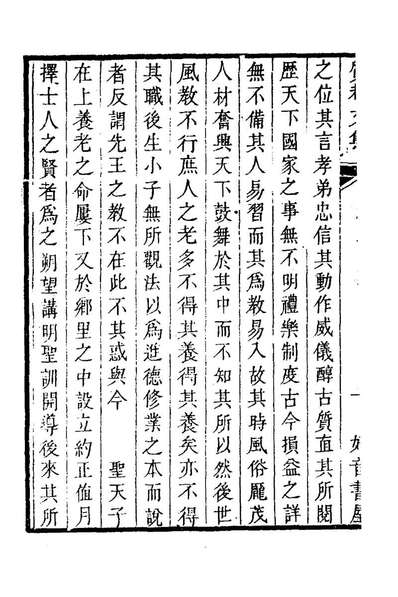 之位其言孝弟忠信其動作威儀醇古質直其所閱
歷天下國家之事無不明禮樂制度古今損益之詳
無不備其人易習而其為教易入故其時風俗龎茂
人材奮興天下鼓舞於其中而不知其所以然後世
風教不行庶人之老多不得其養得其養矣亦不得
其職後生小子無所觀法以為進德修業之本而說
者反謂先王之教不在此不其惑與今　聖天子
在上養老之命屢下又於鄉里之中設立約正值月
擇士人之賢者為之朔望講明聖訓開導後來其所